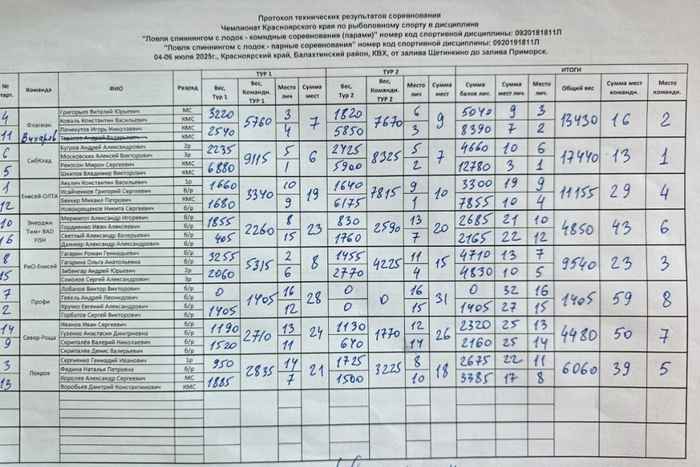 Протокол технических результатов соревнования
Чемпионат Красноярского края по рыболовному спорту в дисциплине
"Ловля спиннингом с лодок - командные соревнования (парами)" номер код спортивной дисциплины: 0920181811Л
"Ловля спиннингом с лодок - парные соревнования" номер код спортивной дисциплины: 0920191811Л
04-06 июля 2025г., Красноярский край, Балахтинский район, КВХ, от залива Щетинкино до залива Приморск.
ТУР 1 ТУР 2 ИТОГИ
№ старт. Команда ФИО Разряд Вес, Тур 1 Вес, Команды. ТУР 1 Место лич Сумма мест Вес, Тур 2 Вес, Команд. ТУР 2 Место лич Сумма мест Сумма балов лич. Сумма мест лич Место лич Общий вес Сумма мест команд Место команд
4 Флагман Григорьев Виталий Юрьевич МС 3220 5760 3 7 1820 7670 6 9 5040 9 3 13430 16 2
Коваль Константин Васильевич МС
11 Почекутов Игорь Николаевич МС 2540 4 5850 3 8390 7 2
КМС
6 СибКлад Бугров Андрей Александрович 2р 2235 9115 5 6 2425 8325 5 7 4660 10 6 17440 13 1
Московских Алексей Викторович 3р
5 Рексон Мирон Сергеевич б/р 6880 1 5900 2 12780 3 1
Шкилов Владимир Викторович КМС
1 Енисей-СИТТА Акулич Константин Васильевич 1р 1660 3340 10 19 1640 7815 9 10 3300 19 9 11155 29 4
Исайченков Григорий Сергеевич б/р
12 Беккер Михаил Петрович КМС 1680 9 6175 1 7855 10 4
Новокрещенов Никита Сергеевич КМС
10 Энерджи Тим+ ВАО РЗН б/р 1855 2260 8 23 830 2590 13 20 2685 21 10 4850 43 6
Гордиенко Иван Алексеевич б/р
16 Светлый Александр Валерьевич б/р 405 15 1760 7 2165 22 12
Далингер Александр Александрович б/р
8 РиО-Енисей Гагарин Роман Геннадьевич б/р 3255 5315 2 8 1455 4225 11 15 4710 13 7 9540 23 3
Гагарина Ольга Анатольевна б/р
15 Андрей Юрьевич 2р 2060 6 2770 4 4830 10 5
Соколов Сергей Александрович б/р
7 Профи Лобанов Виктор Викторович б/р 0 1405 16 28 0 0 16 31 0 32 16 1405 59 8
Гевель Андрей Леонидович б/р
2 Крупко Евгений Александрович б/р 1405 12 0 15 1405 27 15
Горбатов Сергей Викторович б/р
14 Север-Роща Иванов Иван Сергеевич б/р 1190 2710 13 24 1130 1770 12 26 2320 25 13 4480 50 7
Гуренко Анастасия Дмитриевна б/р
9 Скрипалёв Валерий Николаевич б/р 1520 11 640 14 2160 25 14
Скрипалёв Денис Валерьевич б/р
3 Покров Сергиенко Геннадий Иванович 1р 950 2835 14 21 1725 3225 8 18 2675 22 11 6060 39 5
Федина Наталья Петровна б/р
13 Королев Александр Сергеевич МС 1885 7 1500 10 3385 17 8
Воробьев Дмитрий Константинович КМС